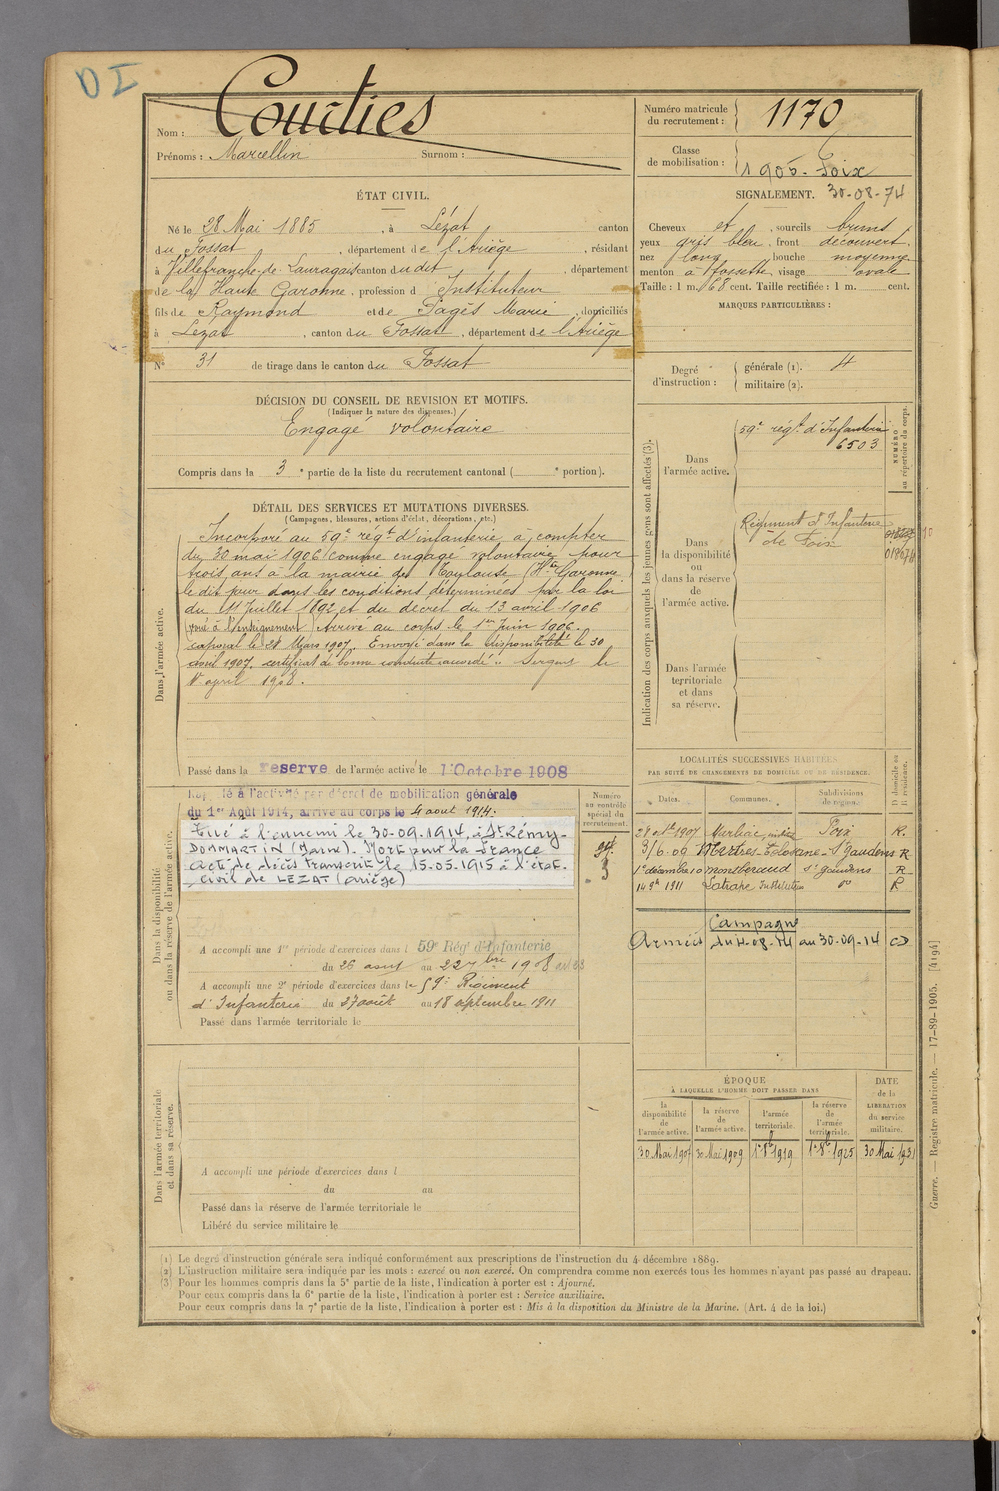 DI
Nom : Courties
Prénoms : Marcellin Surnom :
Numéro matricule du recrutement : 1170
Classe de mobilisation : 1905 - Foix
ÉTAT CIVIL.
Né le 28 Mai 1885, à Lézat, canton
du Fossat, département de l'Ariège, résidant
à Villefranche-de-Lauragais canton du dit, département
de la Haute Garonne, profession d Instituteur
fils de Raymond et de Pagès Marie, domiciliés
à Lezat, canton du Fossat, département de l'Ariège
N° 31 de tirage dans le canton du Fossat
SIGNALEMENT. 30-08-74
Cheveux et, sourcils bruns
yeux gris bleu, front découvert,
nez long, bouche moyenne
menton à fossette, visage ovale
Taille : 1 m. 68 cent. Taille rectifiée : 1 m. cent.
MARQUES PARTICULIÈRES :
Degré d'instruction : générale (1). 4
militaire (2).
DÉCISION DU CONSEIL DE REVISION ET MOTIFS.
(Indiquer la nature des dispenses.)
Engagé volontaire
Compris dans la 3e partie de la liste du recrutement cantonal ( e portion).
DÉTAIL DES SERVICES ET MUTATIONS DIVERSES.
(Campagnes, blessures, actions d'éclat, décorations, etc.)
Dans l'armée active.
Incorporé au 59e regt d'infanterie à compter
du 30 mai 1906 comme engagé volontaire pour
trois ans à la mairie de Toulouse (Hte Garonne)
le dit jour dans les conditions déterminées par la loi
du 11 Juillet 1892 et du decret du 13 avril 1906
(voué à l'enseignement) Arrivé au corps le 1er Juin 1906.
caporal le 28 Mars 1907. Envoyé dans la disponibilité le 30
aout 1907, certificat de bonne conduite accordé. Sergent le
1er april 1908.
Passé dans la reserve de l'armée active le 1 Octobre 1908
Dans la disponibilité ou dans la réserve de l'armée active.
Rappelé à l'activité par décret de mobilisation générale
du 1er Août 1914, arrivé au corps le 4 aout 1914.
Tué à l'ennemi le 30-09-1914, à St Rémy-
DOMMARTIN (Marne). Mort pour la France
acte de décès transcrit le 15.05.1915 à l'état.
civil de LEZAT (Ariège)
A accompli une 1re période d'exercices dans l 59e Rég d'Infanterie
du 26 aout au 22 7bre 1908
A accompli une 2e période d'exercices dans le 59e Régiment
d'Infanterie du 27 août au 18 septembre 1911
Passé dans l'armée territoriale le
Numéro au contrôle spécial du recrutement.
3
Dans l'armée territoriale et dans sa réserve.
A accompli une période d'exercices dans l
du au
Passé dans la réserve de l'armée territoriale le
Libéré du service militaire le
Indication des corps auxquels les jeunes gens sont affectés (3).
NUMÉRO au répertoire du corps.
Dans l'armée active.
59e régt d'Infanterie
6503
Dans la disponibilité ou dans la réserve de l'armée active.
Régiment d'Infanterie
de Foix
Dans l'armée territoriale et dans sa réserve.
LOCALITÉS SUCCESSIVES HABITÉES
PAR SUITE DE CHANGEMENTS DE DOMICILE OU DE RÉSIDENCE.
Dates. Communes. Subdivisions de région. D domicile ou R résidence.
1907 Marliac, Foix R.
3/6.06 Martres-Tolosane - St gaudens R
1er décembre 10 montberaud St gaudens R
14 1911 Latrape Instituteur do R
Campagne
Armées du 4-08-14 au 30-09-14 CD
ÉPOQUE
À LAQUELLE L'HOMME DOIT PASSER DANS
la disponibilité de l'armée active. la réserve de l'armée active. l'armée territoriale. la réserve de l'armée territoriale.
DATE de la LIBÉRATION du service militaire.
30 Mai 1907 30 Mai 1909 1er 8b 1919 1er 8b 1925 30 Mai 1931
(1) Le degré d'instruction générale sera indiqué conformément aux prescriptions de l'instruction du 4 décembre 1889.
(2) L'instruction militaire sera indiquée par les mots : exercé ou non exercé. On comprendra comme non exercés tous les hommes n'ayant pas passé au drapeau.
(3) Pour les hommes compris dans la 5e partie de la liste, l'indication à porter est : Ajourné.
Pour ceux compris dans la 6e partie de la liste, l'indication à porter est : Service auxiliaire.
Pour ceux compris dans la 7e partie de la liste, l'indication à porter est : Mis à la disposition du Ministre de la Marine. (Art. 4 de la loi.)
Guerre. — Registre matricule. — 17-89-1905. [4194]